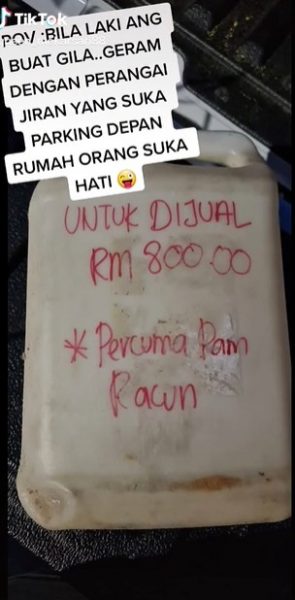 TikTok
POV :BILA LAKI ANG
BUAT GILA..GERAM
DENGAN PERANGAI
JIRAN YANG SUKA
PARKING DEPAN
RUMAH ORANG SUKA
HATI 😜
UNTUK DIJUAL
RM 800.00
* Percuma Pam
Racun